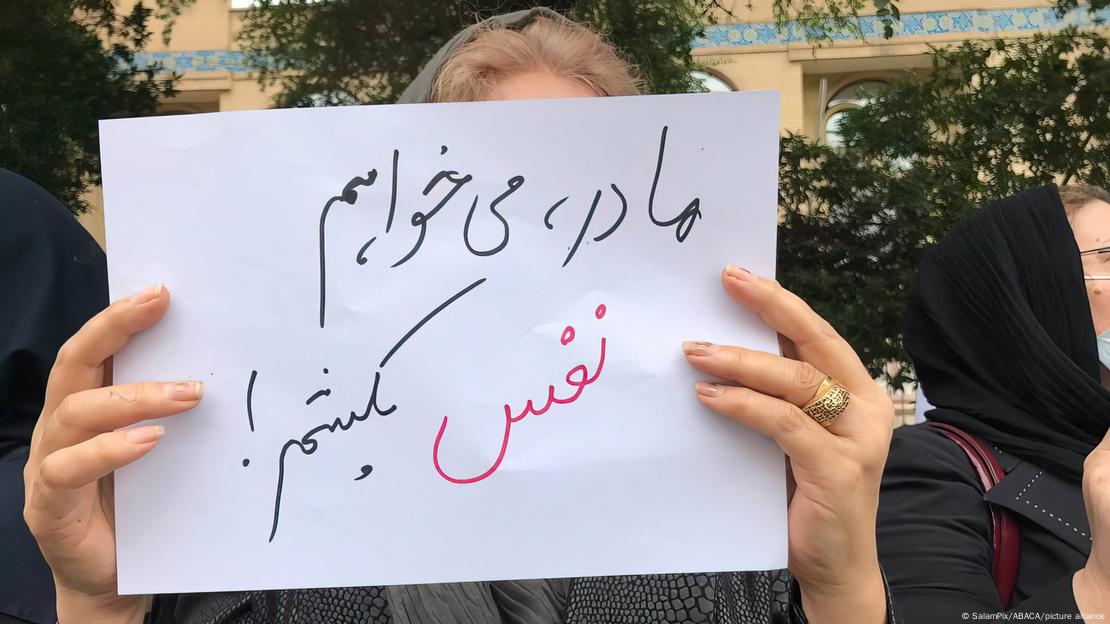 مادر، می‌خواهیم
نفس بکشیم!
© SalamPix/ABACA/picture alliance